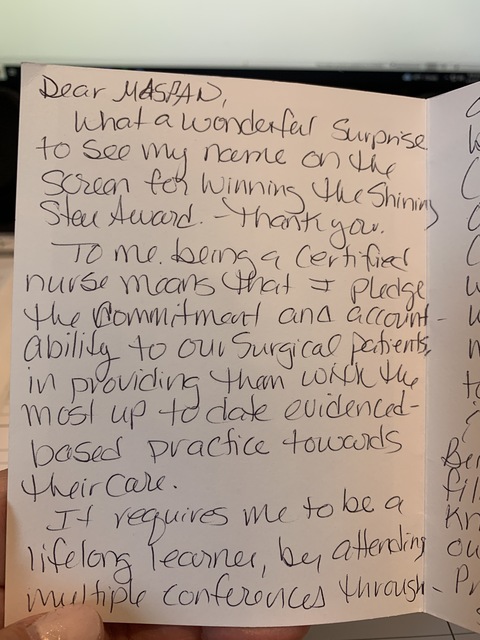 Dear MASPAN,
What a wonderful Surprise
to see my name on the
Screen for winning the Shining
Star Award. - Thank you.
To me being a certified
nurse means that I pledge
the Commitment and account-
ability to our Surgical patients,
in providing them with the
most up to date evidenced-
based practice towards
their care.
It requires me to be a
lifelong learner, by attending
multiple conferences through-